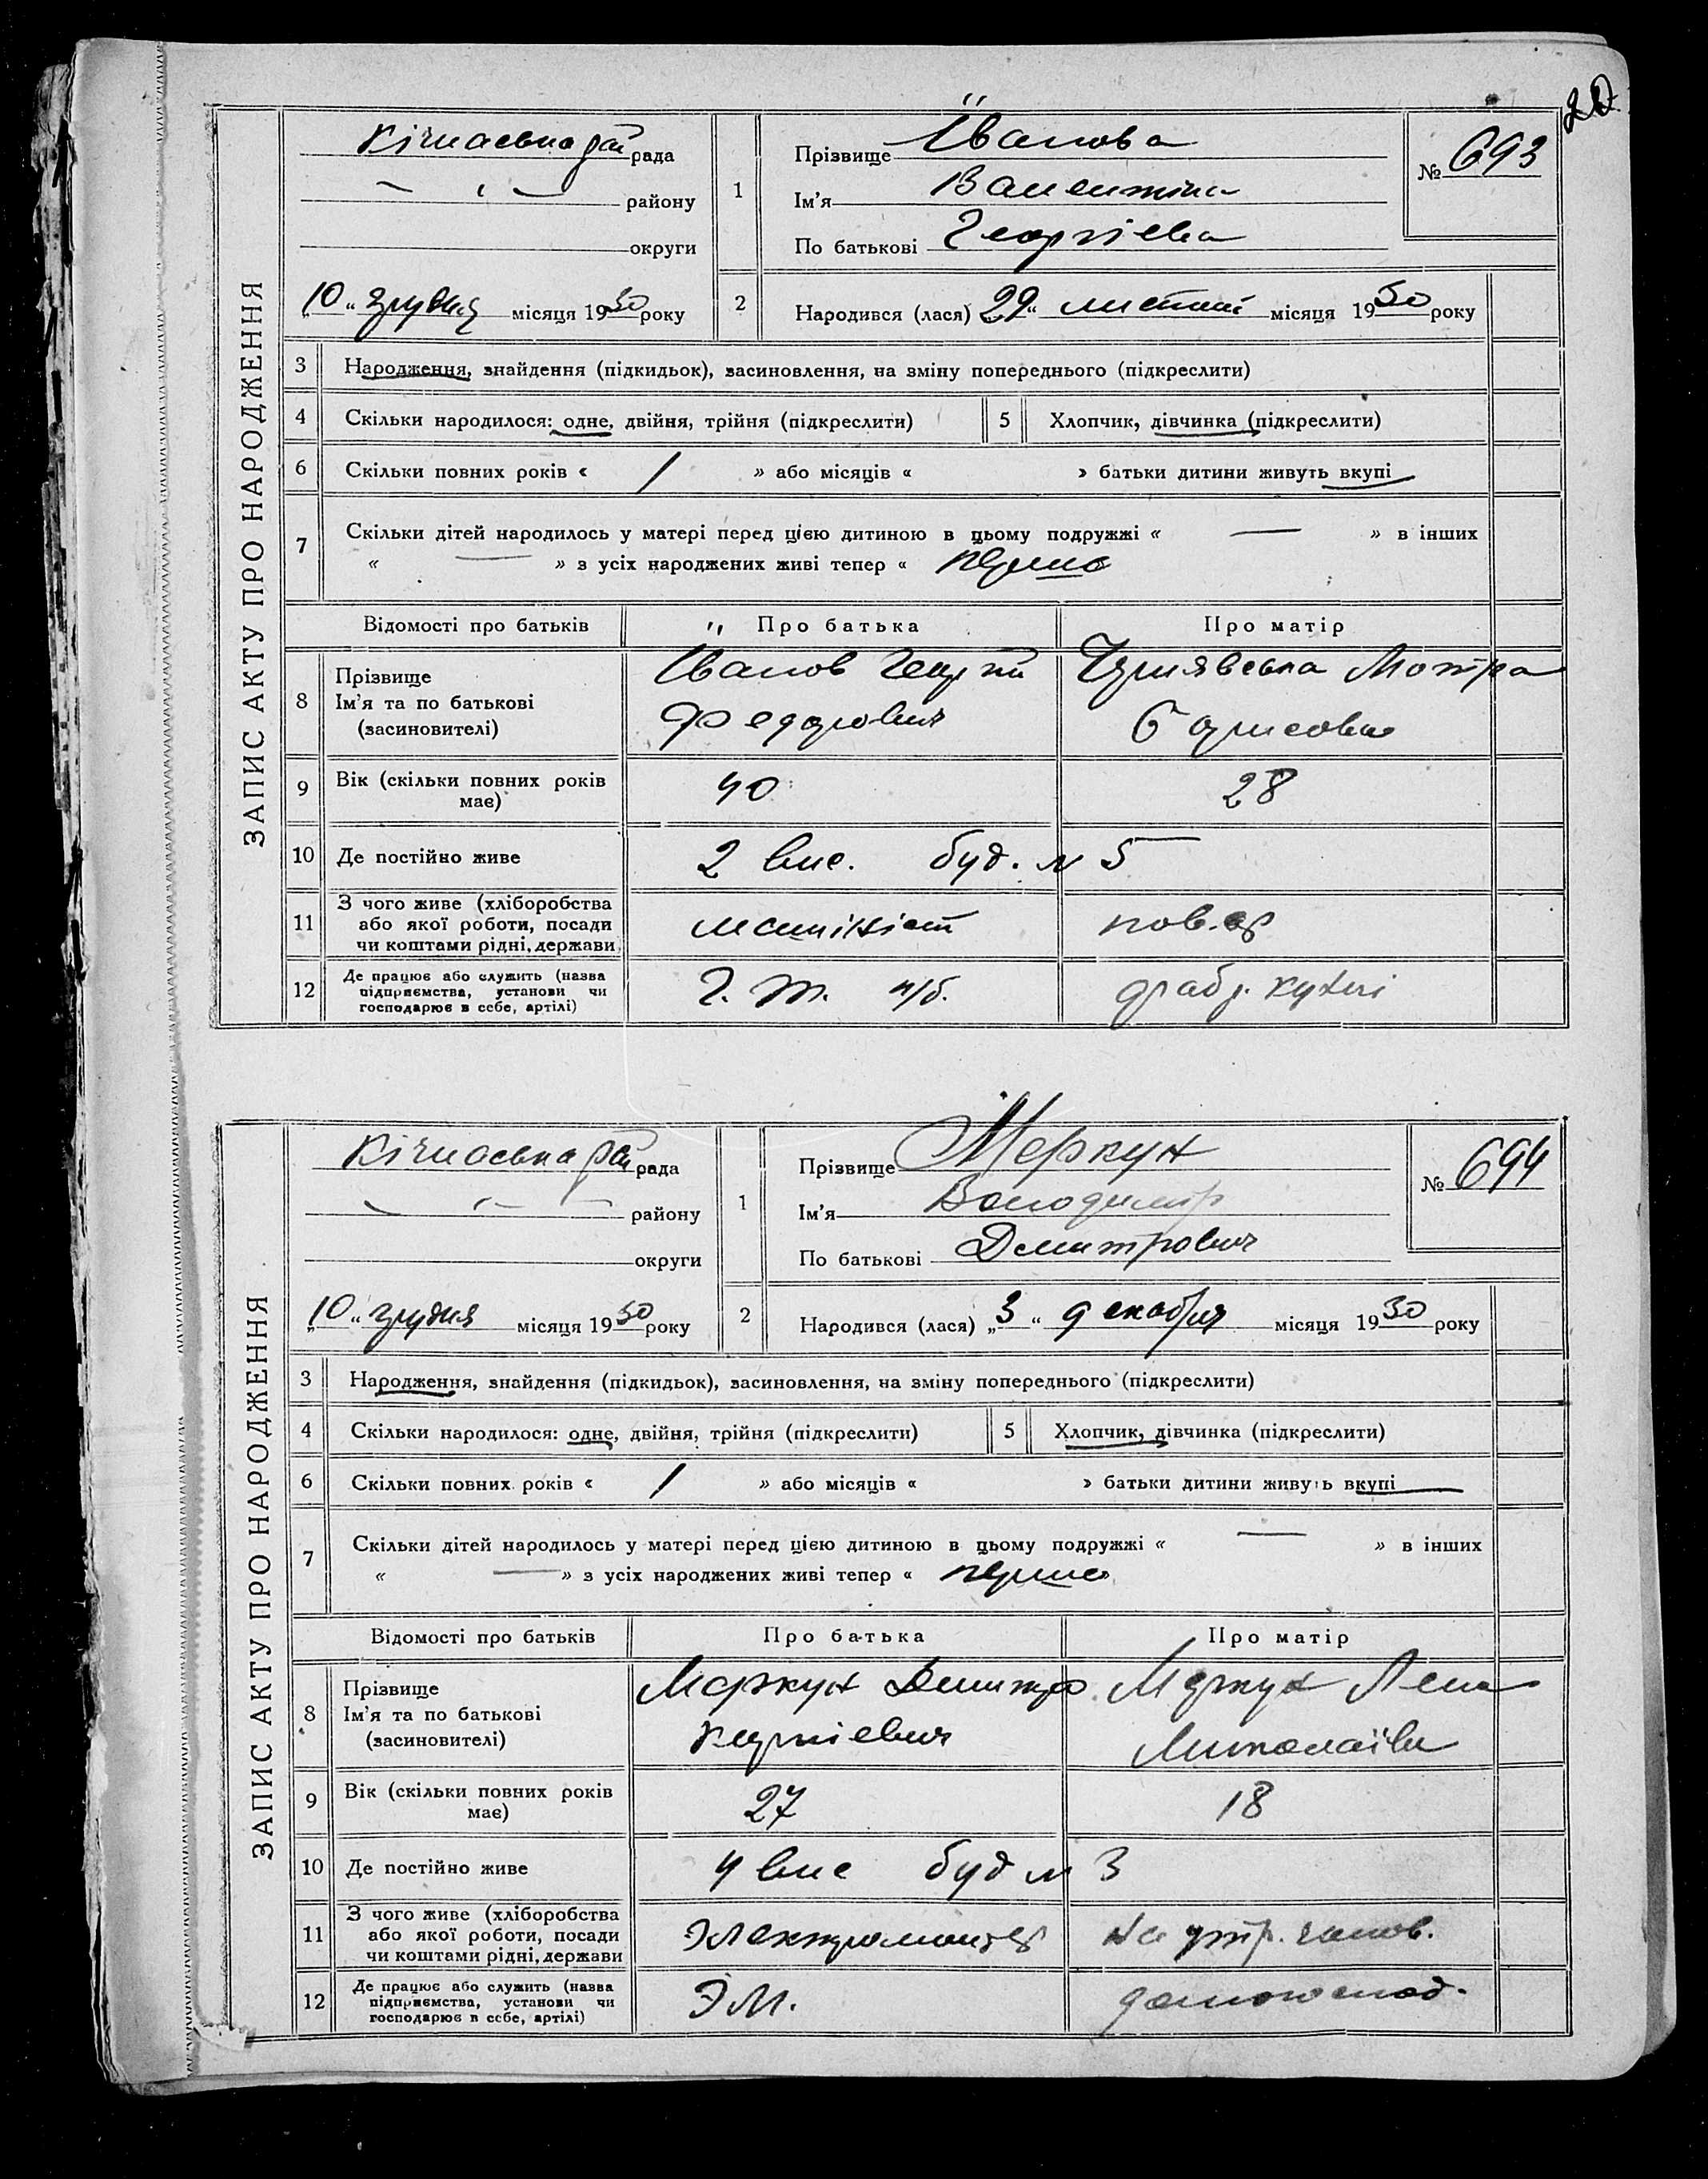 20
ЗАПИС АКТУ ПРО НАРОДЖЕННЯ
Кічкаська рай рада
району
округи
10 „ грудня місяця 1930 року
1
Прізвище Іванова
Ім'я Валентина
По батькові Георгіевна
№ 693
2
Народився (лася) 29 „ листопаі місяця 1930 року
3 Народження, знайдення (підкидьок), засиновлення, на зміну попереднього (підкреслити)
4 Скільки народилося: одне, двійня, трійня (підкреслити) 5 Хлопчик, дівчинка (підкреслити)
6 Скільки повних років « / » або місяців « » батьки дитини живуть вкупі
7 Скільки дітей народилось у матері перед цією дитиною в цьому подружжі « — » в інших
« — » з усіх народжених живі тепер « перше
Відомості про батьків Про батька Про матір
8 Прізвище Ім'я та по батькові (засновителі)
Іванов Георгій Чернявська Мотря
Федорович Борисовна
9 Вік (скільки повних років має) 40 28
10 Де постійно живе 2 вис. буд. № 5
11 З чого живе (хліборобства або якої роботи, посади чи коштами рідні, держави
машиніст пов.
12 Де працює або служить (назва підприємства, установи чи господарює в себе, артілі)
фабр. кухні
ЗАПИС АКТУ ПРО НАРОДЖЕННЯ
Кічкаська рай рада
району
округи
„10 „ грудня місяця 1930 року
1
Прізвище Меркун
Ім'я Володимир
По батькові Дмитрович
№ 694
2
Народився (лася) „3 „ декабря місяця 1930 року
3 Народження, знайдення (підкидьок), засиновлення, на зміну попереднього (підкреслити)
4 Скільки народилося: одне, двійня, трійня (підкреслити) 5 Хлопчик, дівчинка (підкреслити)
6 Скільки повних років « / » або місяців « » батьки дитини живуть вкупі
7 Скільки дітей народилось у матері перед цією дитиною в цьому подружжі « — » в інших
« — » з усіх народжених живі тепер « перше»
Відомості про батьків Про батька Про матір
8 Прізвище Ім'я та по батькові (засиновителі)
Меркун Дмитро Меркун Лена
Миколаївн
9 Вік (скільки повних років має) 27 18
10 Де постійно живе 4 вис буд № 3
11 З чого живе (хліборобства або якої роботи, посади чи коштами рідні, держави
Электромонтер На утр. чолов.
12 Де працює або служить (назва підприємства, установи чи господарює в себе, артілі)
Э М. домогоспод.